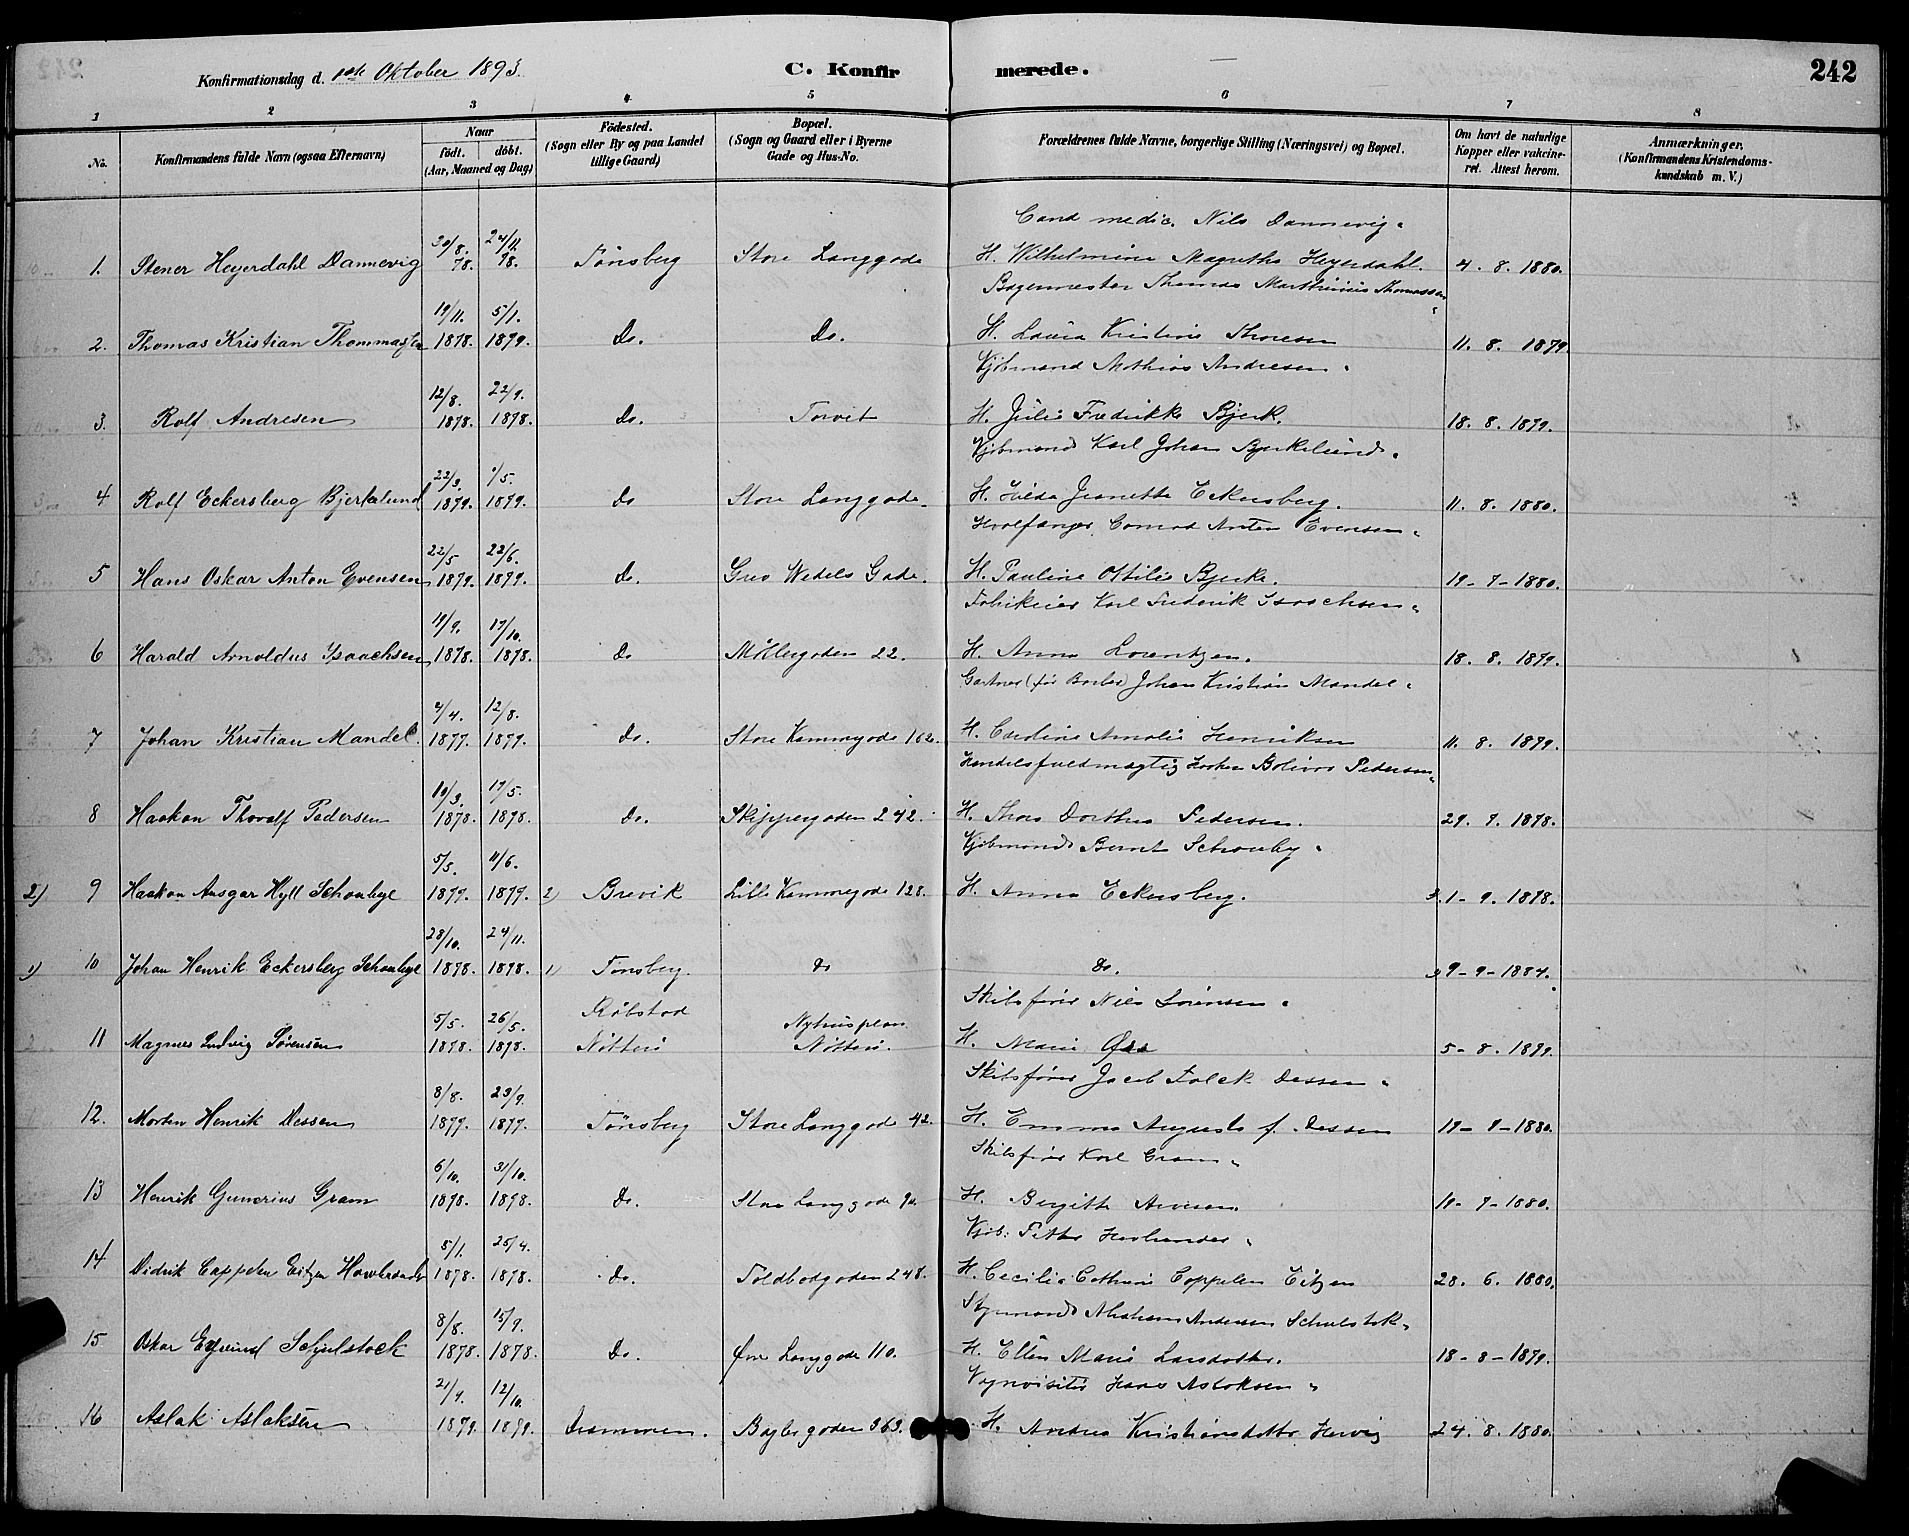 Konfirmationsdag d. 1ste Oktober 1893.
C. Konfir merede.
242
1 2 3 4 5 6 7 8
No.
Konfirmandens fulde Navn (ogsaa Efternavn)
Naar
födt. döbt.
(Aar, Maaned og Dag)
Födested.
(Sogn eller By og paa Landet
tillige Gaard)
Bopæl.
(Sogn og Gaard eller i Byerne
Gade og Hus-No.
Forældrenes fulde Navne, borgerlige Stilling (Næringsvei) og Bopæl.
Om havt de naturlige
Kopper eller vakcine-
ret. Attest herom.
Anmærkninger.
(Konfirmandens Kristendoms-
kundskab m. V.)
Cand medic. Nils Dannevig
30/8. 24/11.
1. Stener Heyerdahl Dannevig 78. 78. Tønsberg Store Langgade H. Wilhelmine Magrethe Heyerdahl. 4. 8. 1880.
Bagermester Thomas Marthinius Thomassen
19/11. 5/1.
2. Thomas Kristian Thommasen 1878. 1879. Do. Do. H. Lovisa Kristine Thoresen 11. 8. 1879
Kjøbmand Mathias Andresen
12/8. 22/9.
3. Rolf Andresen 1878. 1878. Do. Torvet H. Julie Fredrikke Bjerk. 18. 8. 1879.
Kjøbmand Karl Johan Bjerkelund
22/3. 1/5.
4 Rolf Eckersberg Bjerkelund 1879. 1879. Do Store Langgade H. Hilda Jeanette Eckersberg. 11. 8. 1880.
Hvalfanger Conrad Anton Evensen
22/5 22/6.
5 Hans Oskar Anton Evensen 1879. 1879. Do. Grev Wedels Gade. H. Pauline Ottilie Bjerke. 19-7-1880.
Fabrikeier Karl Frederik Isaachsen
19/9. 17/10.
6 Harald Arnoldus Isaachsen 1878. 1878. Do Möllergaden 22. H. Anna Lorentzen. 18. 8. 1879.
Gartner (før Barber) Johan Kristian Mandel
4/4. 12/8.
7 Johan Kristian Mandel. 1877. 1877. Do. Store Kammegade 102. H. Caroline Amalie Henriksen 11. 8. 1879.
Handelsfuldmægtig Haaken Bolivar Pedersen
19/3. 17/5.
8 Haakon Thoralf Pedersen 1878. 1878. Do. Skippergaden 242. H. Thora Dorthea Pedersen. 29. 7. 1878.
Kjøbmand Bernt Schouby
5/5. 11/6.
2) 9 Haakon Ansgar Hyll Schoubye 1877. 1877. 2) Brevik Lille Kammegade 128. H. Anna Eckersberg. 1-9. 1878.
28/10. 24/11.
1) 10 Johan Henrik Eckersberg Schoubye 1878. 1878. 1) Tønsberg. Do Do. 9-9-1884.
Skibsfører Nils Sørensen
5/5. 26/5. Røbstad Nyhusplan
11 Magnus Ludvig Sørensen 1878. 1878. Nötterö Nötterö. H. Marie 5-8. 1879.
Skibsfører Jacob Falck Dessen
8/8. 23/9.
12. Morten Henrik Dessen 1877. 1877. Tønsberg Store Langgade 42. H. Emma Augusta f. Dessen 19-7-1880.
Skibsfører Karl Gram
6/10. 31/10.
13 Henrik Gunerius Gram 1878. 1878. Do. Store Langgade 90. H. Birgitte Arvesen 19-7-1880.
Kjøb: Petter
5/1. 25/4.
14 Didrik Cappelen Eitzen 1878. 1878. Do. Toldbodgaden 248. H. Cecilie Cathrine Cappelen Eitzen 28. 6. 1880.
Styrmand Abraham Andersen Schjelstok
8/8. 15/9.
15 Oskar Eyvind Schjelstock 1878. 1878. Do. Øvre Langgade 110. H. Ellen Marie Larsdatter. 18-8-1879.
Vognvisitør Hans Aslaksen
21/9. 12/10.
16 Aslak Aslaksen 1879. 1879. Drammen. Baglergaden 363. H. Andrea Kristiansdatter Hervig 24. 8. 1880.